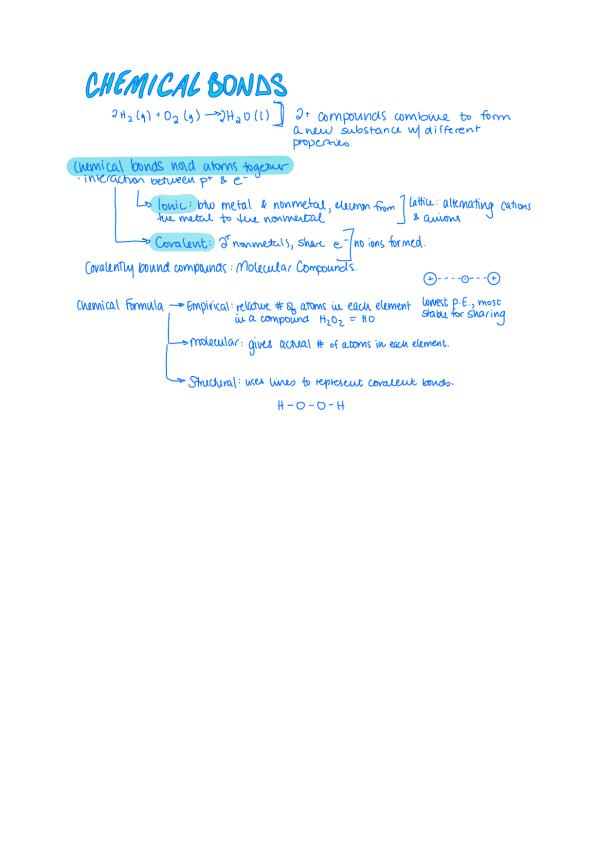 CHEMICAL BONDS
2H₂(g) + O₂(g) → 2H₂O(l)] 2+ compounds combine to form
a new substance w/ different
properties
Chemical bonds hold atoms together
· interaction between p⁺ & e⁻
Ionic: btw metal & nonmetal, electron from
the metal to the nonmetal
] lattice: alternating cations
& anions
Covalent: 2⁺ nonmetals, share e⁻] no ions formed.
Covalently bound compounds: Molecular Compounds.
+ - - - - - - - +
lowest P.E., most
stable for sharing
Chemical Formula → Empirical: relative # of atoms in each element
in a compound H₂O₂ = HO
→ Molecular: gives actual # of atoms in each element.
→ Structural: uses lines to represent covalent bonds.
H-O-O-H